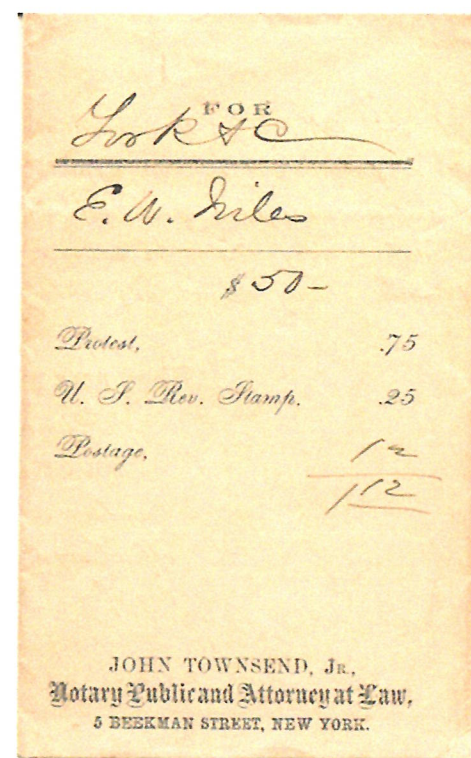 FOR
York SC
E. W. Niles
$ 50-
Protest, .75
U. S. Rev. Stamp. .25
Postage, 12
1 12
JOHN TOWNSEND, JR.,
Notary Public and Attorney at Law,
5 BEEKMAN STREET, NEW YORK.